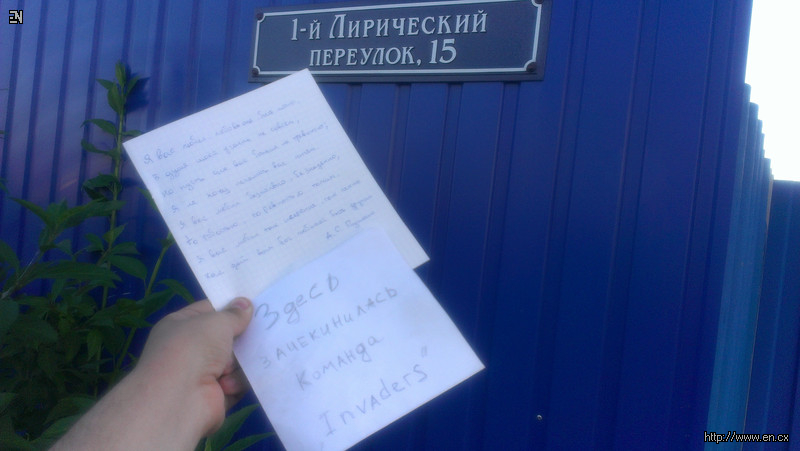 EN
1-й Лирический
переулок, 15
Я Вас любил
В душе моей угасла не совсем,
Но пусть она вас больше не тревожит;
Я не хочу печалить вас ничем.
Я вас любил безмолвно, безнадежно,
То робостью, то ревностью томим;
Я вас любил так искренно, так нежно
Как дай вам Бог любимой быть другим
А.С. Пушкин
Здесь
зачекинилась
команда
"Invaders"
http://www.en.cx